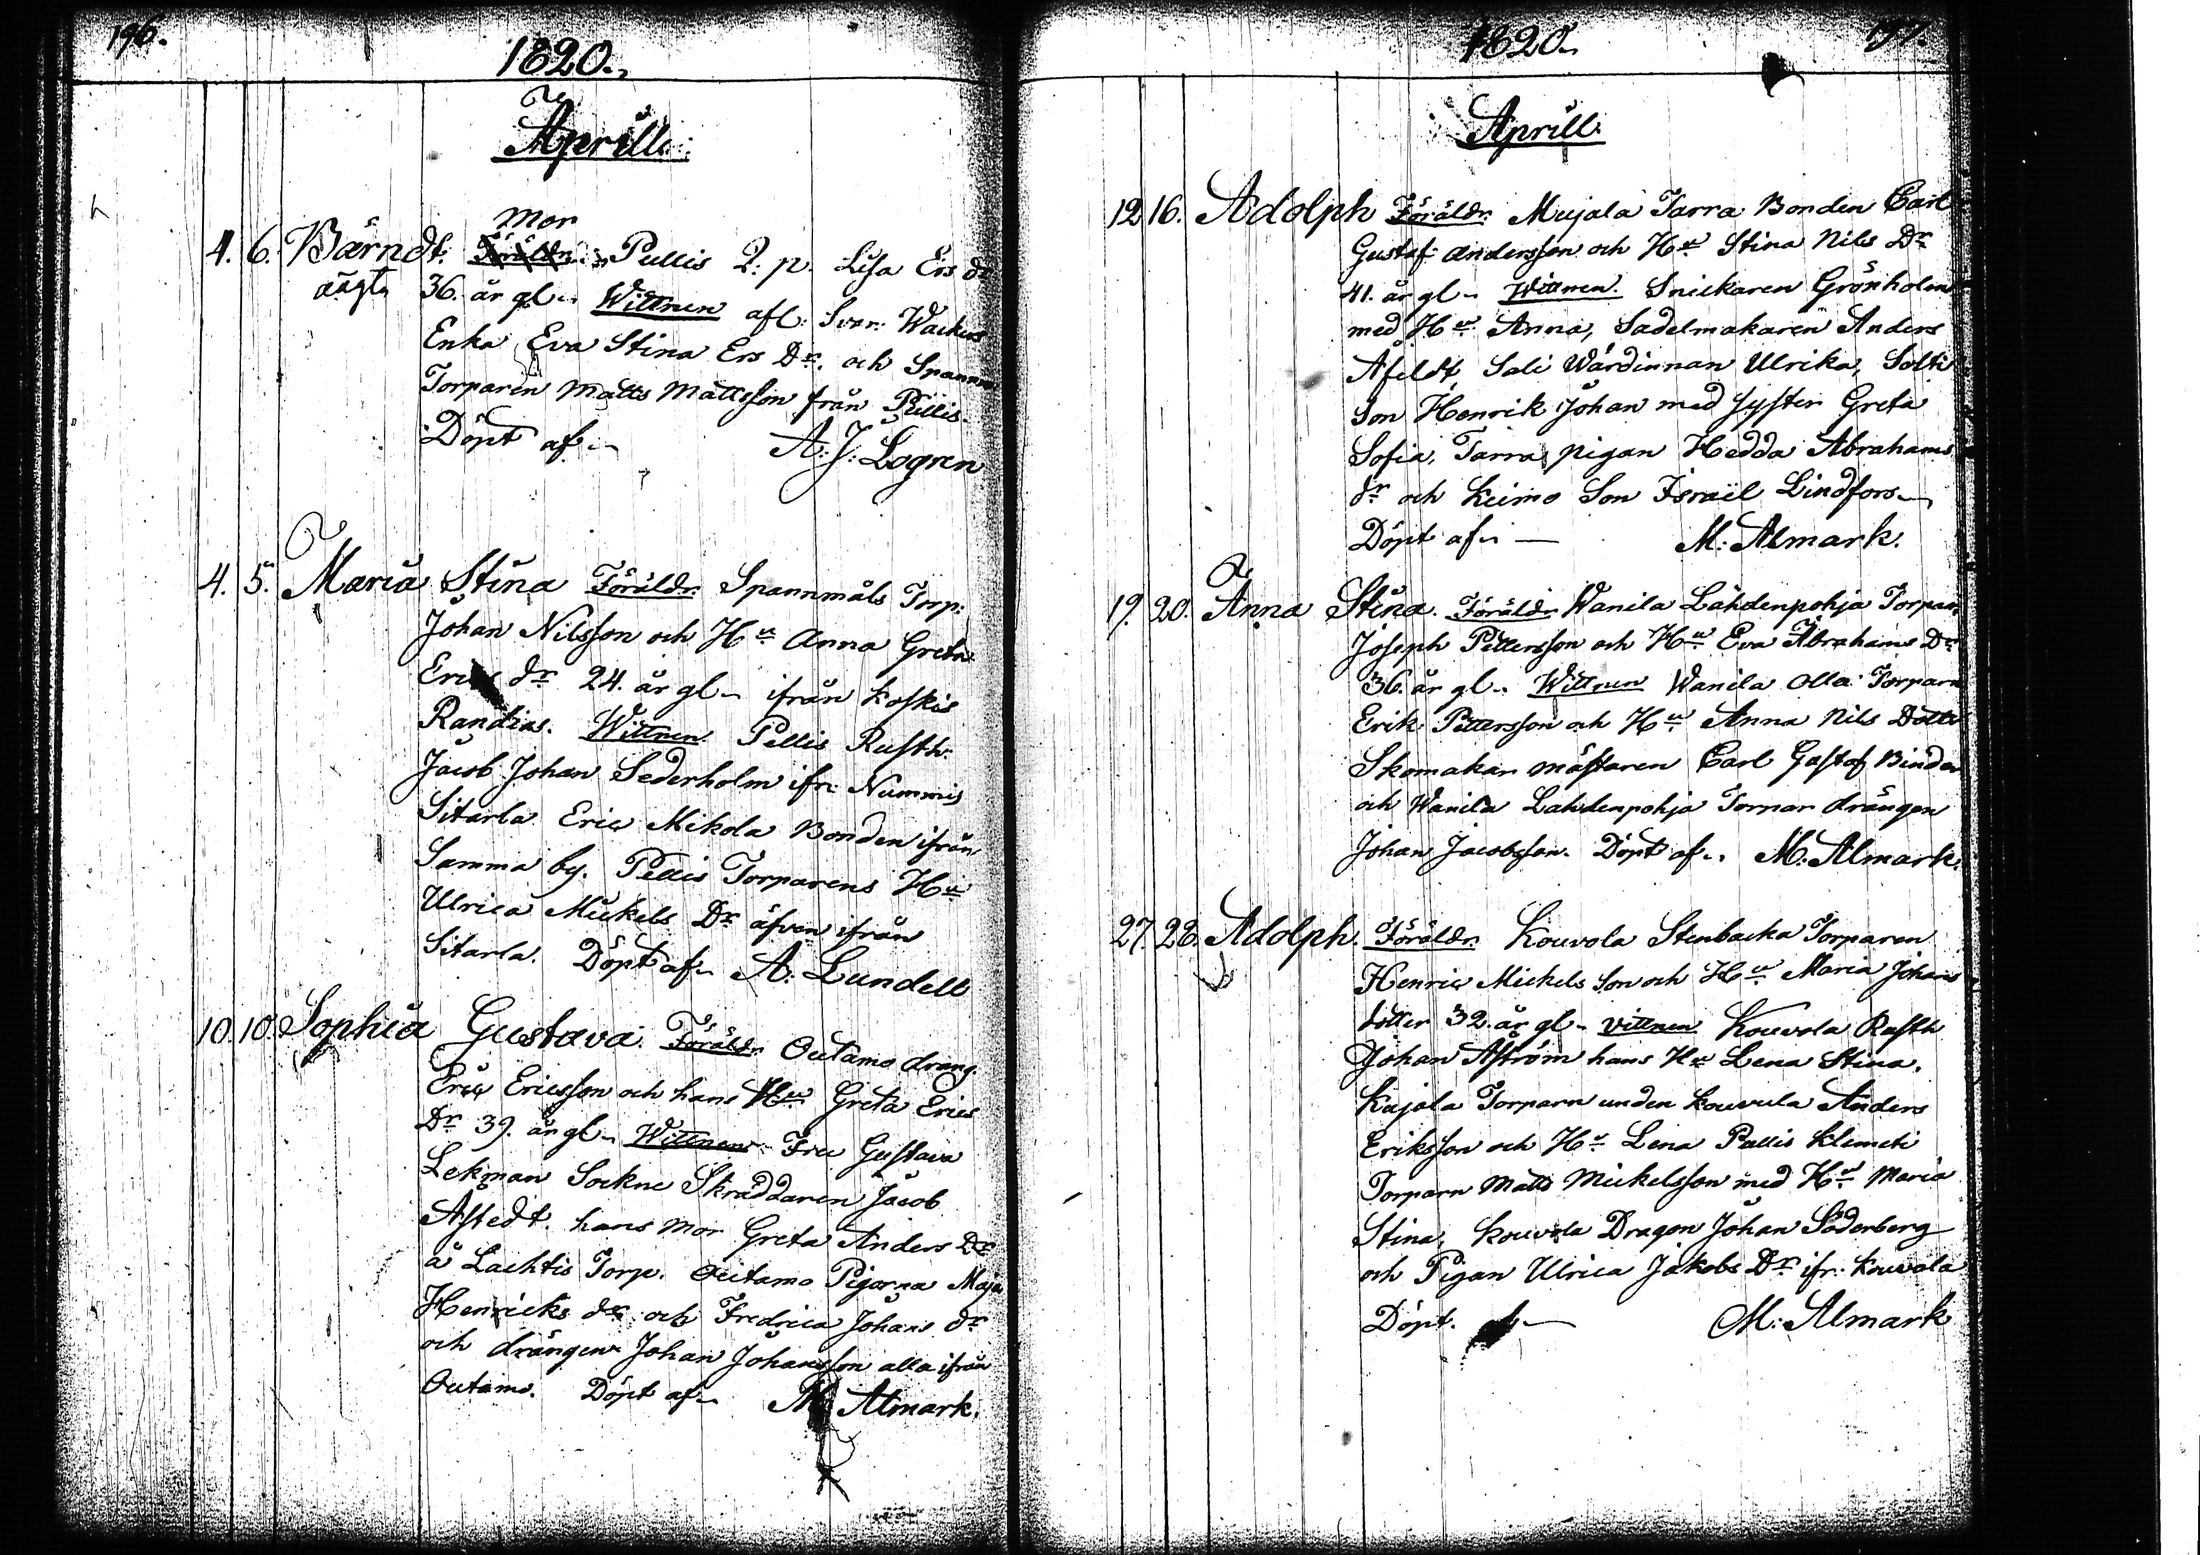 196.
1820.
Aprill.
Mor
4. 6. Bärndt. Föräldr. Pullis Q: p. Lisa Ers dr
oägta 36. år gl. Wittnen afl: Sven: Wackers
Enka Eva Stina Ers Dr. och Spannm
Torparen Matts Mattsson från Pullis.
Döpt af A: J: Logren
4. 5. Maria Stina Föräldr. Spannmåls Torp:
Johan Nilsson och Hu Anna Greta
Erics dr 24. år gl ifrån Koskis
Randias. Wittnen Pellis Rusth.
Jacob Johan Sederholm ifr: Nummis
Sitarla Eric Mikola Bonden ifrån
Samma by. Pellis Torparens Hu
Ulrica Mickels Dr äfven ifrån
Sitarla. Döpt af A: Lundell
10. 10. Sophia Gustava. Föräldr. Outamo dräng
Eric Ericsson och hans Hu Greta Erics
Dr 39. år gl Wittnen Fru Gustava
Lekman Sockne Skräddaren Jacob
Afstedt. hans mor Greta Anders Dr
å Lachtis Torp. Outamo Pigorna Maja
Henricks dr och Fredrica Johans dr
och drängen Johan Johansson alla ifrån
Outamo. Döpt af M. Almark.
1820. 197.
Aprill.
12. 16. Adolph Föräldr. Mujala Tarra Bonden Carl
Gustaf Andersson och Hu Stina Nils Dr
41. år gl Wittnen. Snickaren Grönholm
med Hu Anna, Sadelmakaren Anders
Afeldt Sali Wärdinnan Ulrika, Solti
Son Henrik Johan med syster Greta
Sofia, Tarra pigan Hedda Abrahams
dr och Keimo Son Israel Lindfors
Döpt af M: Almark.
19. 20. Anna Stina. Föräldr. Wanila Lahdenpohja Torparn
Joseph Pettersson och Hu Eva Abrahams Dr
36. år gl. Wittnen Wanila Olla Torparn
Erik Pettersson och Hu Anna Nils Dotter
Skomakar mästaren Carl Gustaf Binder
och Wanila Lahdenpohja Torpar drängen
Johan Jacobsson. Döpt af M. Almark.
27. 28. Adolph. Föräldr. Kouvola Stenbacka Torparen
Henric Mickels son och Hu Maria Johans
dotter 32 år gl vittnen Kouvola Rusth
Johan Aström hans Hu Lena Stina.
Kujala Torparn unden Kouvula Anders
Eriksson och Hu Lena Pullis Klemeti
Torparn Matts Mickelsson med Hu Maria
Stina, Kouvola Dragon Johan Söderberg
och Pigan Ulrica Jakobs Dr ifr: Kouvola
Döpt. af M: Almark